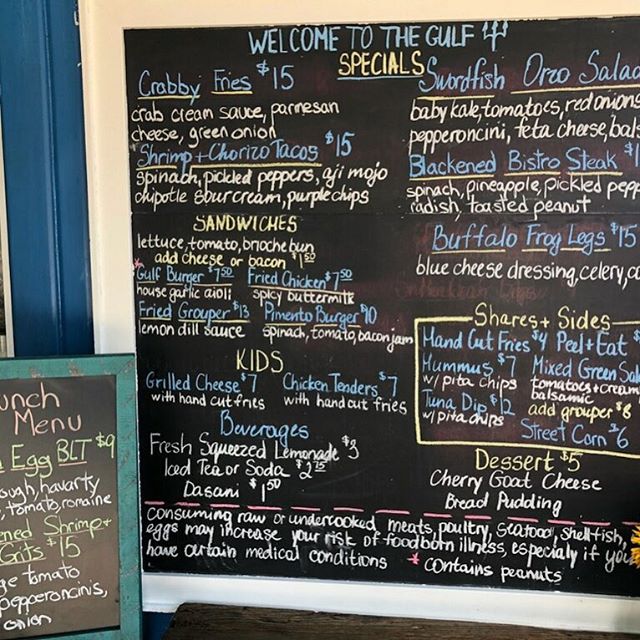 WELCOME TO THE GULF
SPECIALS
Crabby Fries $15
crab cream sauce, parmesan
cheese, green onion
Shrimp + Chorizo Tacos $15
spinach, pickled peppers, aji mojo
chipotle sour cream, purple chips
SANDWICHES
lettuce, tomato, brioche bun
add cheese or bacon $1.50
*Gulf Burger $7.50 Fried Chicken $7.50
house garlic aioli spicy buttermilk
Fried Grouper $13 Pimento Burger $10
lemon dill sauce spinach, tomato, bacon jam
KIDS
Grilled Cheese $7 Chicken Tenders $7
with hand cut fries with hand cut fries
Beverages
Fresh Squeezed Lemonade $3
Iced Tea or Soda $2.75
Dasani $1.50
Swordfish Orzo Salad
baby kale, tomatoes, red onions
pepperoncini, feta cheese, bals
Blackened Bistro Steak $1
spinach, pineapple, pickled pepp
radish, toasted peanut
Buffalo Frog Legs $15
blue cheese dressing, celery, ca
Shares + Sides
Hand Cut Fries $4 Peel + Eat $
Hummus $7 Mixed Green Sala
w/ pita chips tomatoes + cream
balsamic
Tuna Dip $12 add grouper $8
w/ pita chips
Street Corn $6
Dessert $5
Cherry Goat Cheese
Bread Pudding
consuming raw or undercooked meats, poultry, seafood, shellfish,
eggs may increase your risk of foodborn illness, especialy if you
have certain medical conditions * contains peanuts
unch
Menu
Egg BLT $9
ough, havarty
, tomato, romaine
ened Shrimp +
Grits $15
ge tomato
pepperoncinis,
onion